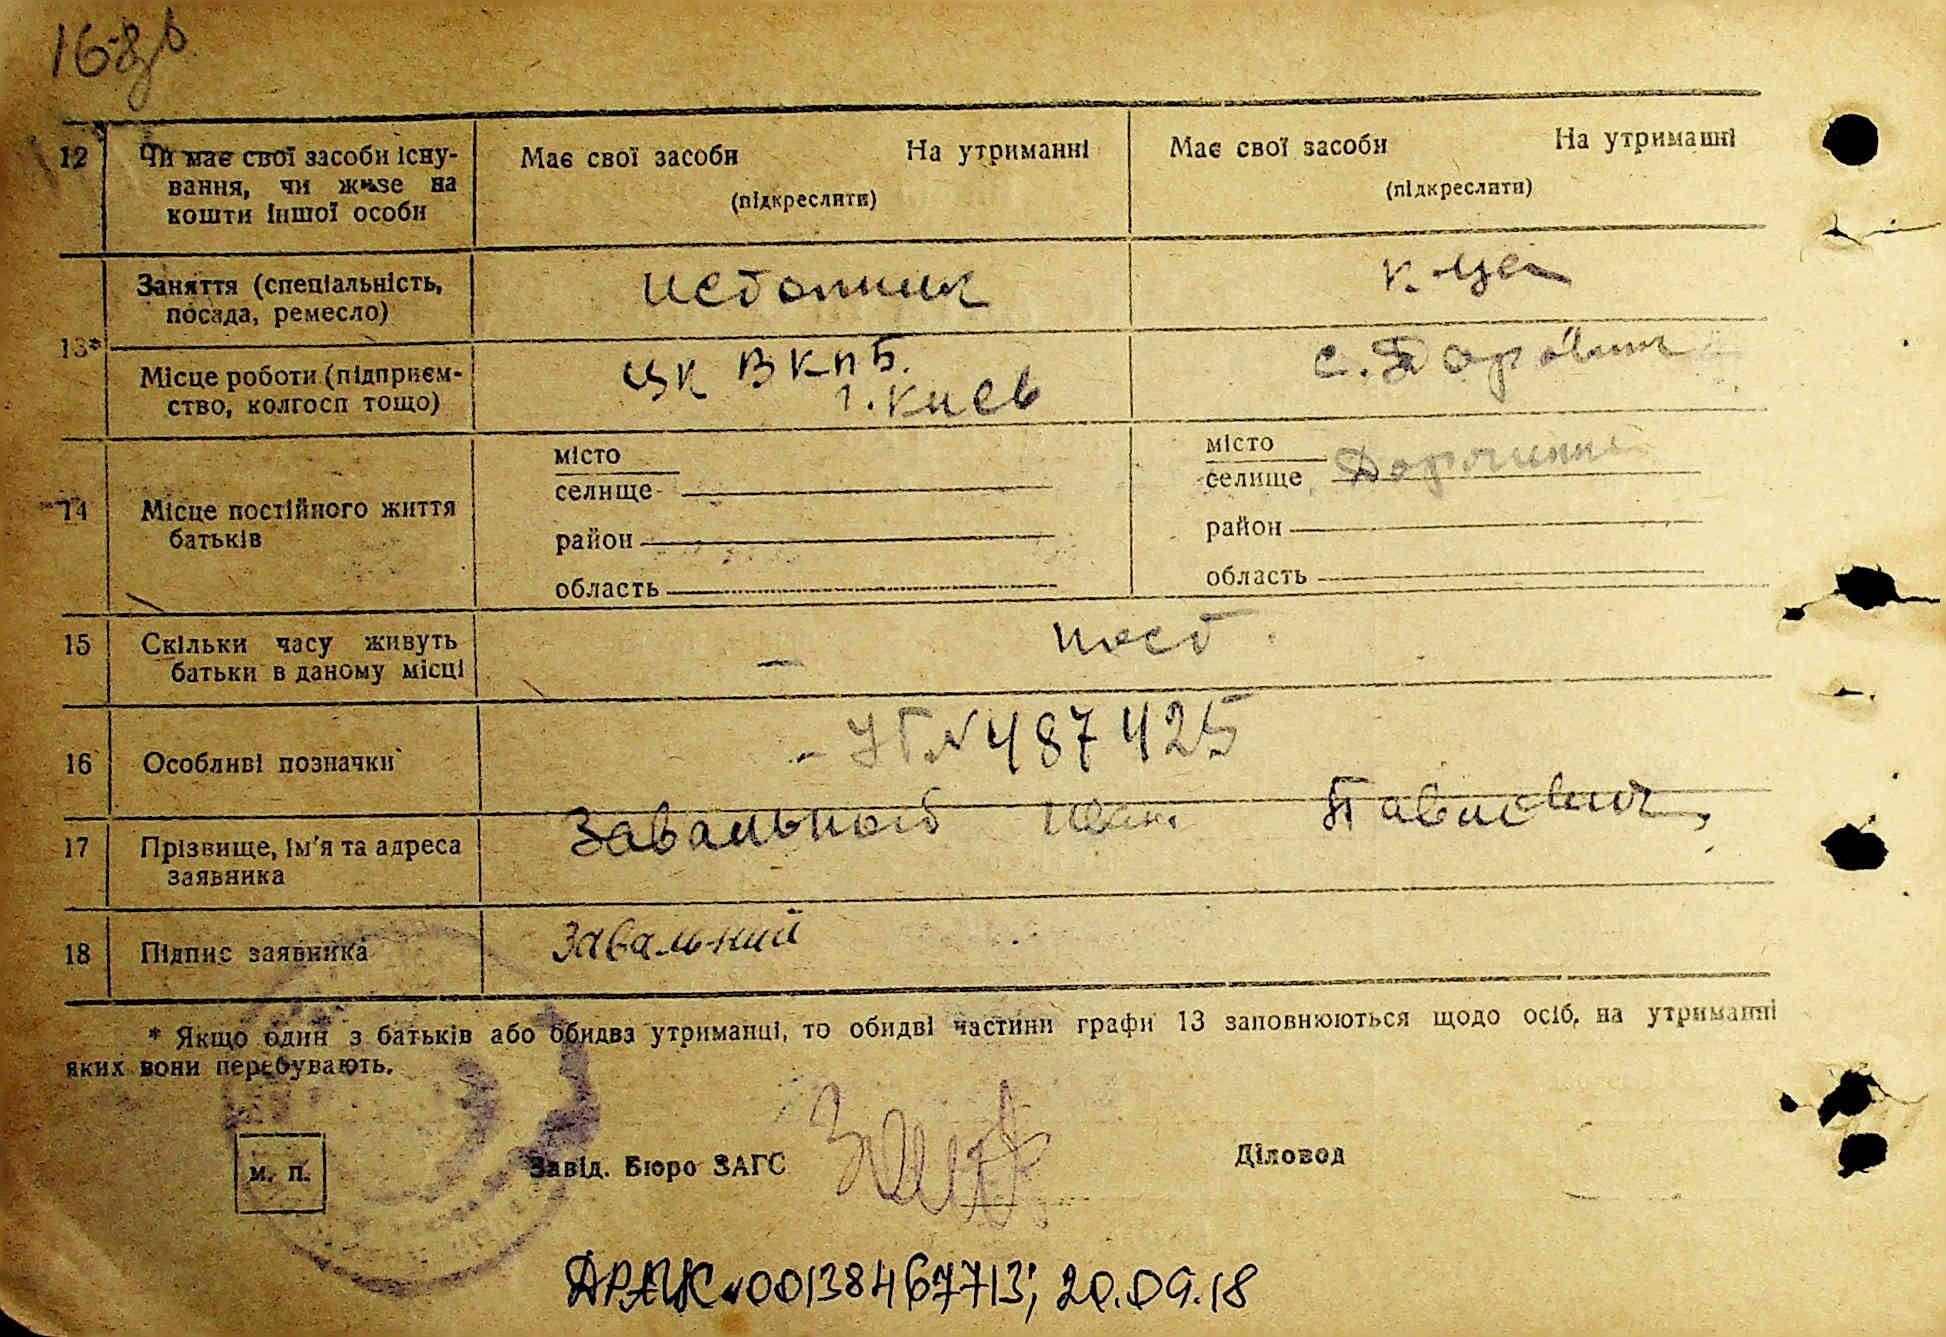 16 зв
12 Чи має свої засоби існу- Має свої засоби На утриманні Має свої засоби На утриманні
вання, чи живе на (підкреслити) (підкреслити)
кошти іншої особи
13* Заняття (спеціальність, к-ца
посада, ремесло)
Місце роботи (підприєм- ЦК ВКПБ. с.
ство, колгосп тощо) г. Киев
14 Місце постійного життя
батьків
місто місто
селище селище
район район
область область
15 Скільки часу живуть — пост
батьки в даному місці
16 Особливі позначки – УГ № 487425
17 Прізвище, ім'я та адреса Завальной Иван Павлович
заявника
18 Підпис заявника Завальний
* Якщо один з батьків або обидва утриманці, то обидві частини графи 13 заповнюються щодо осіб, на утриманні
яких вони перебувають.
м. п. Завід. Бюро ЗАГС Діловод
ДРАЦС №00138467713; 20.09.18